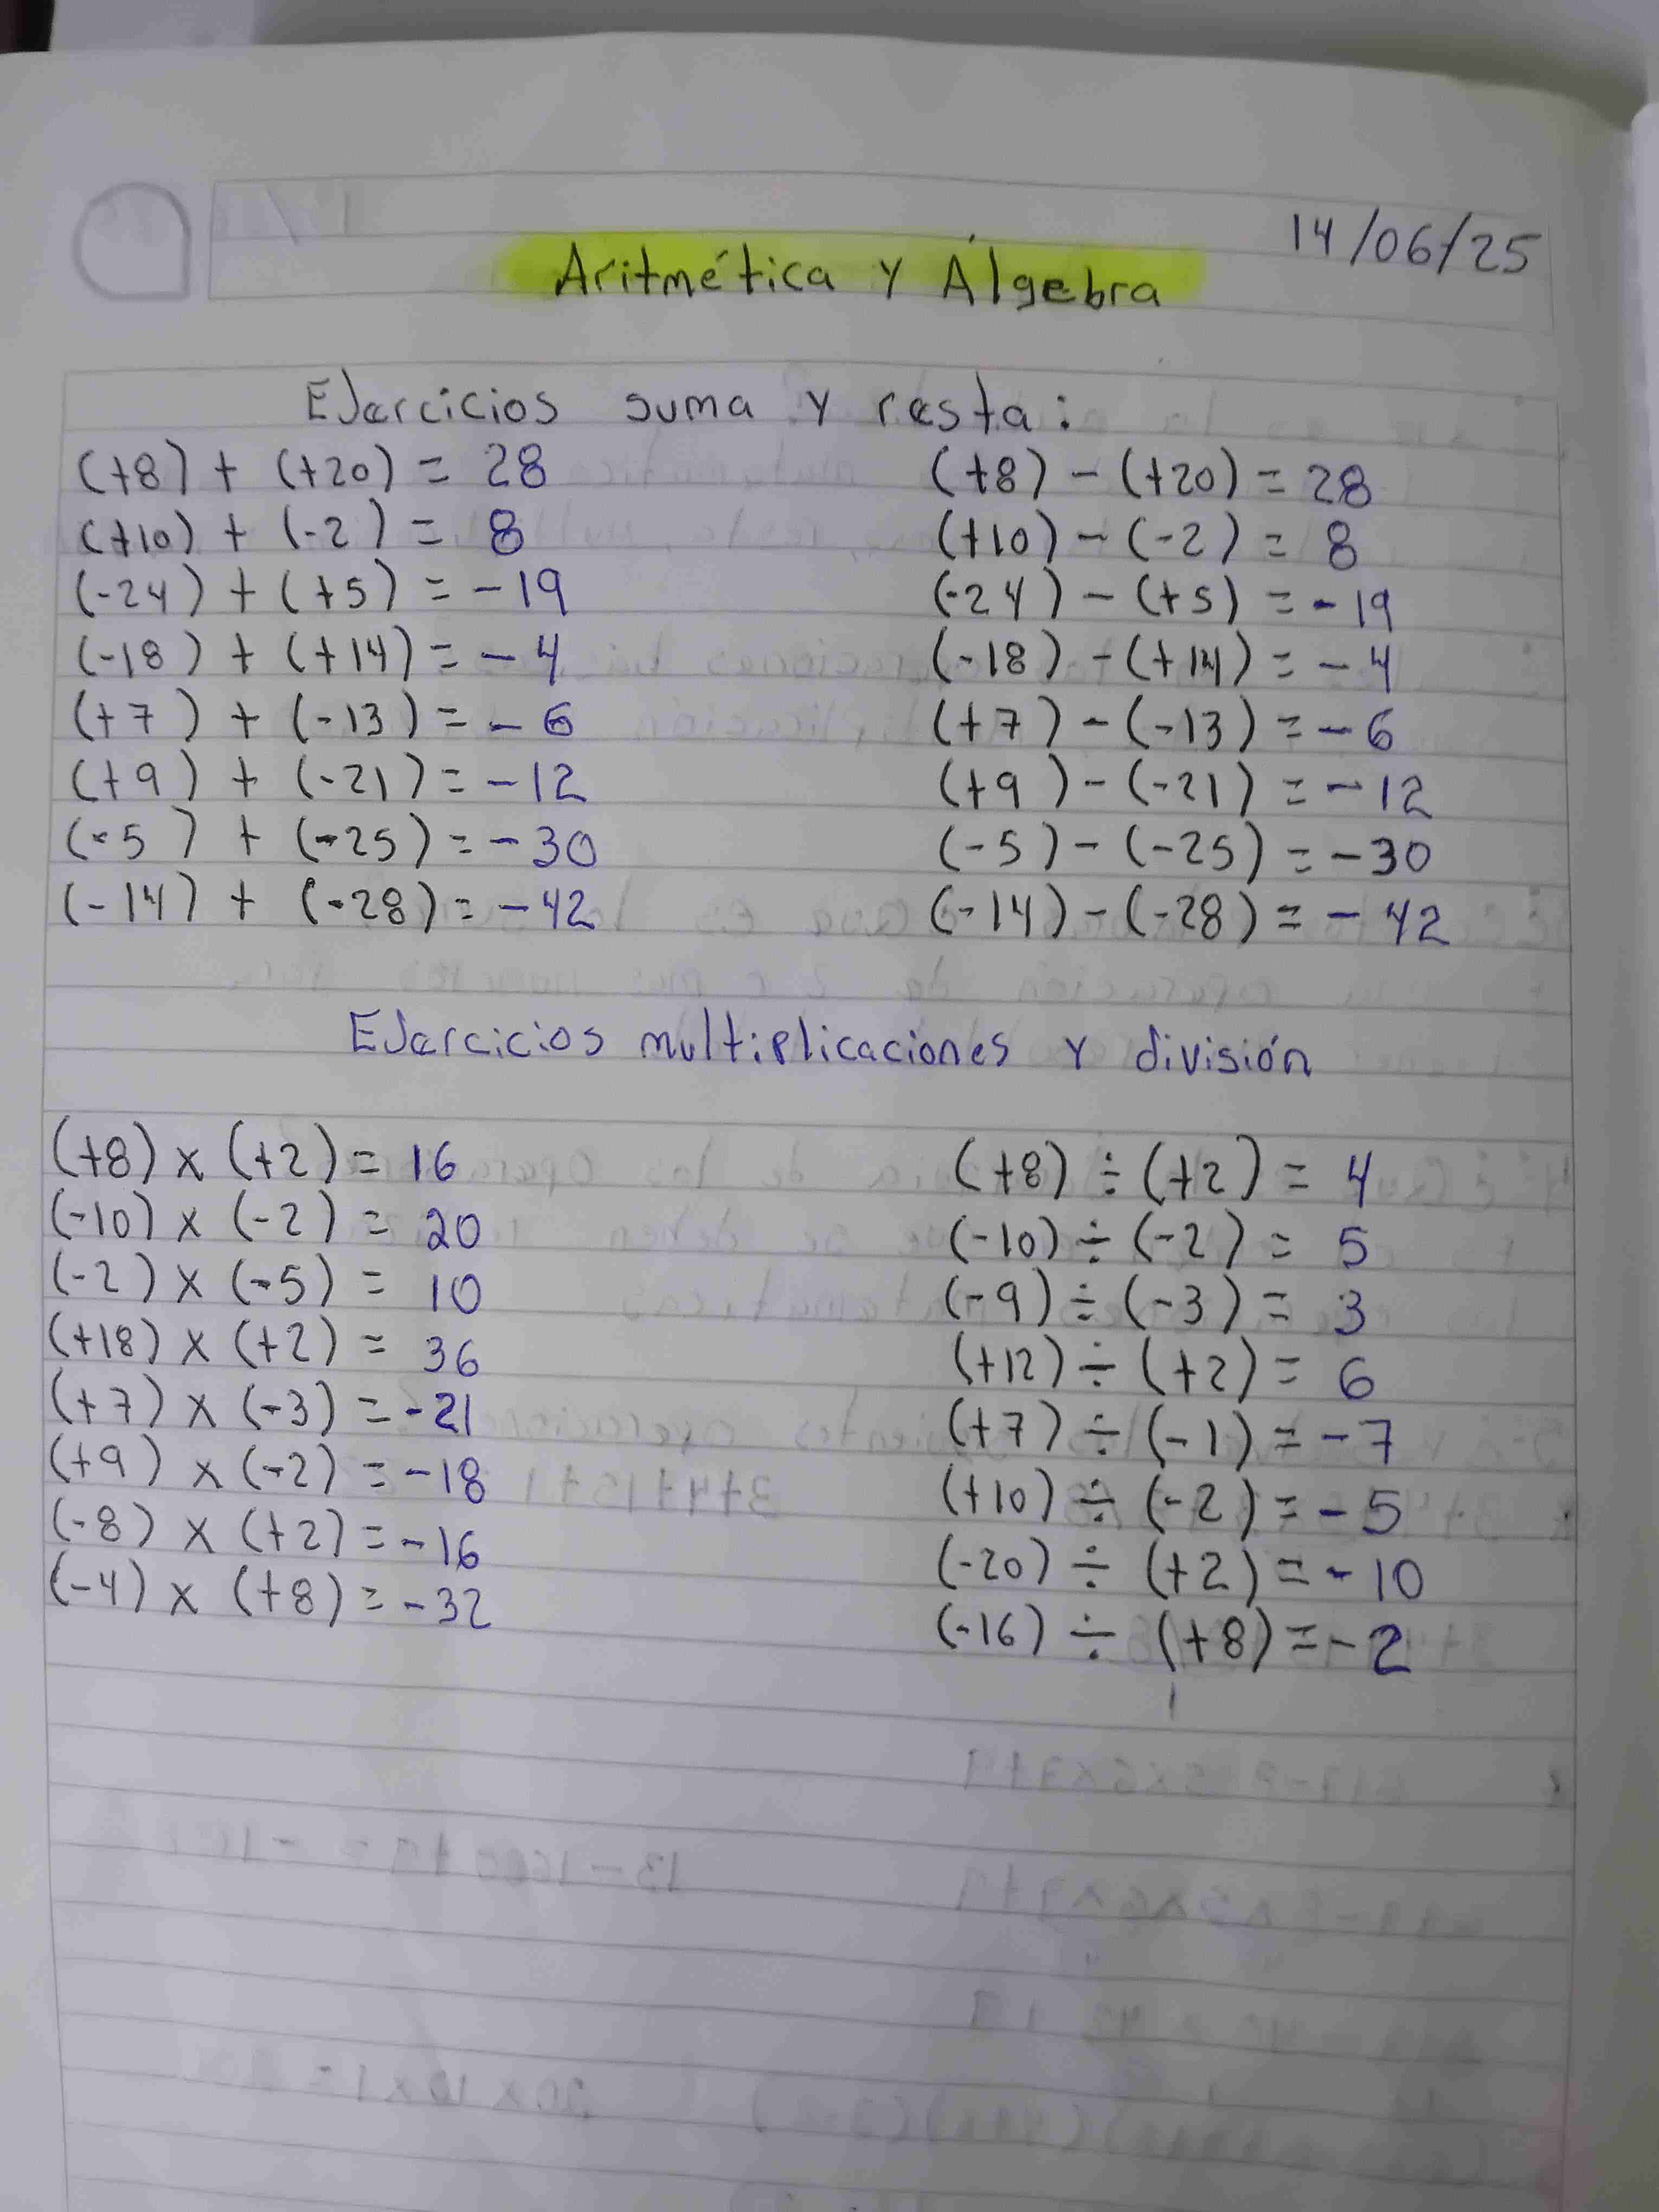 14/06/25
Aritmética y Álgebra
Ejercicios suma y resta:
(+8) + (+20) = 28
(+10) + (-2) = 8
(-24) + (+5) = -19
(-18) + (+14) = -4
(+7) + (-13) = -6
(+9) + (-21) = -12
(-5) + (-25) = -30
(-14) + (-28) = -42
(+8) - (+20) = 28
(+10) - (-2) = 8
(-24) - (+5) = -19
(-18) - (+14) = -4
(+7) - (-13) = -6
(+9) - (-21) = -12
(-5) - (-25) = -30
(-14) - (-28) = -42
Ejercicios multiplicaciones y división
(+8) x (+2) = 16
(-10) x (-2) = 20
(-2) x (-5) = 10
(+18) x (+2) = 36
(+7) x (-3) = -21
(+9) x (-2) = -18
(-8) x (+2) = -16
(-4) x (+8) = -32
(+8) ÷ (+2) = 4
(-10) ÷ (-2) = 5
(-9) ÷ (-3) = 3
(+12) ÷ (+2) = 6
(+7) ÷ (-1) = -7
(+10) ÷ (-2) = -5
(-20) ÷ (+2) = -10
(-16) ÷ (+8) = -2